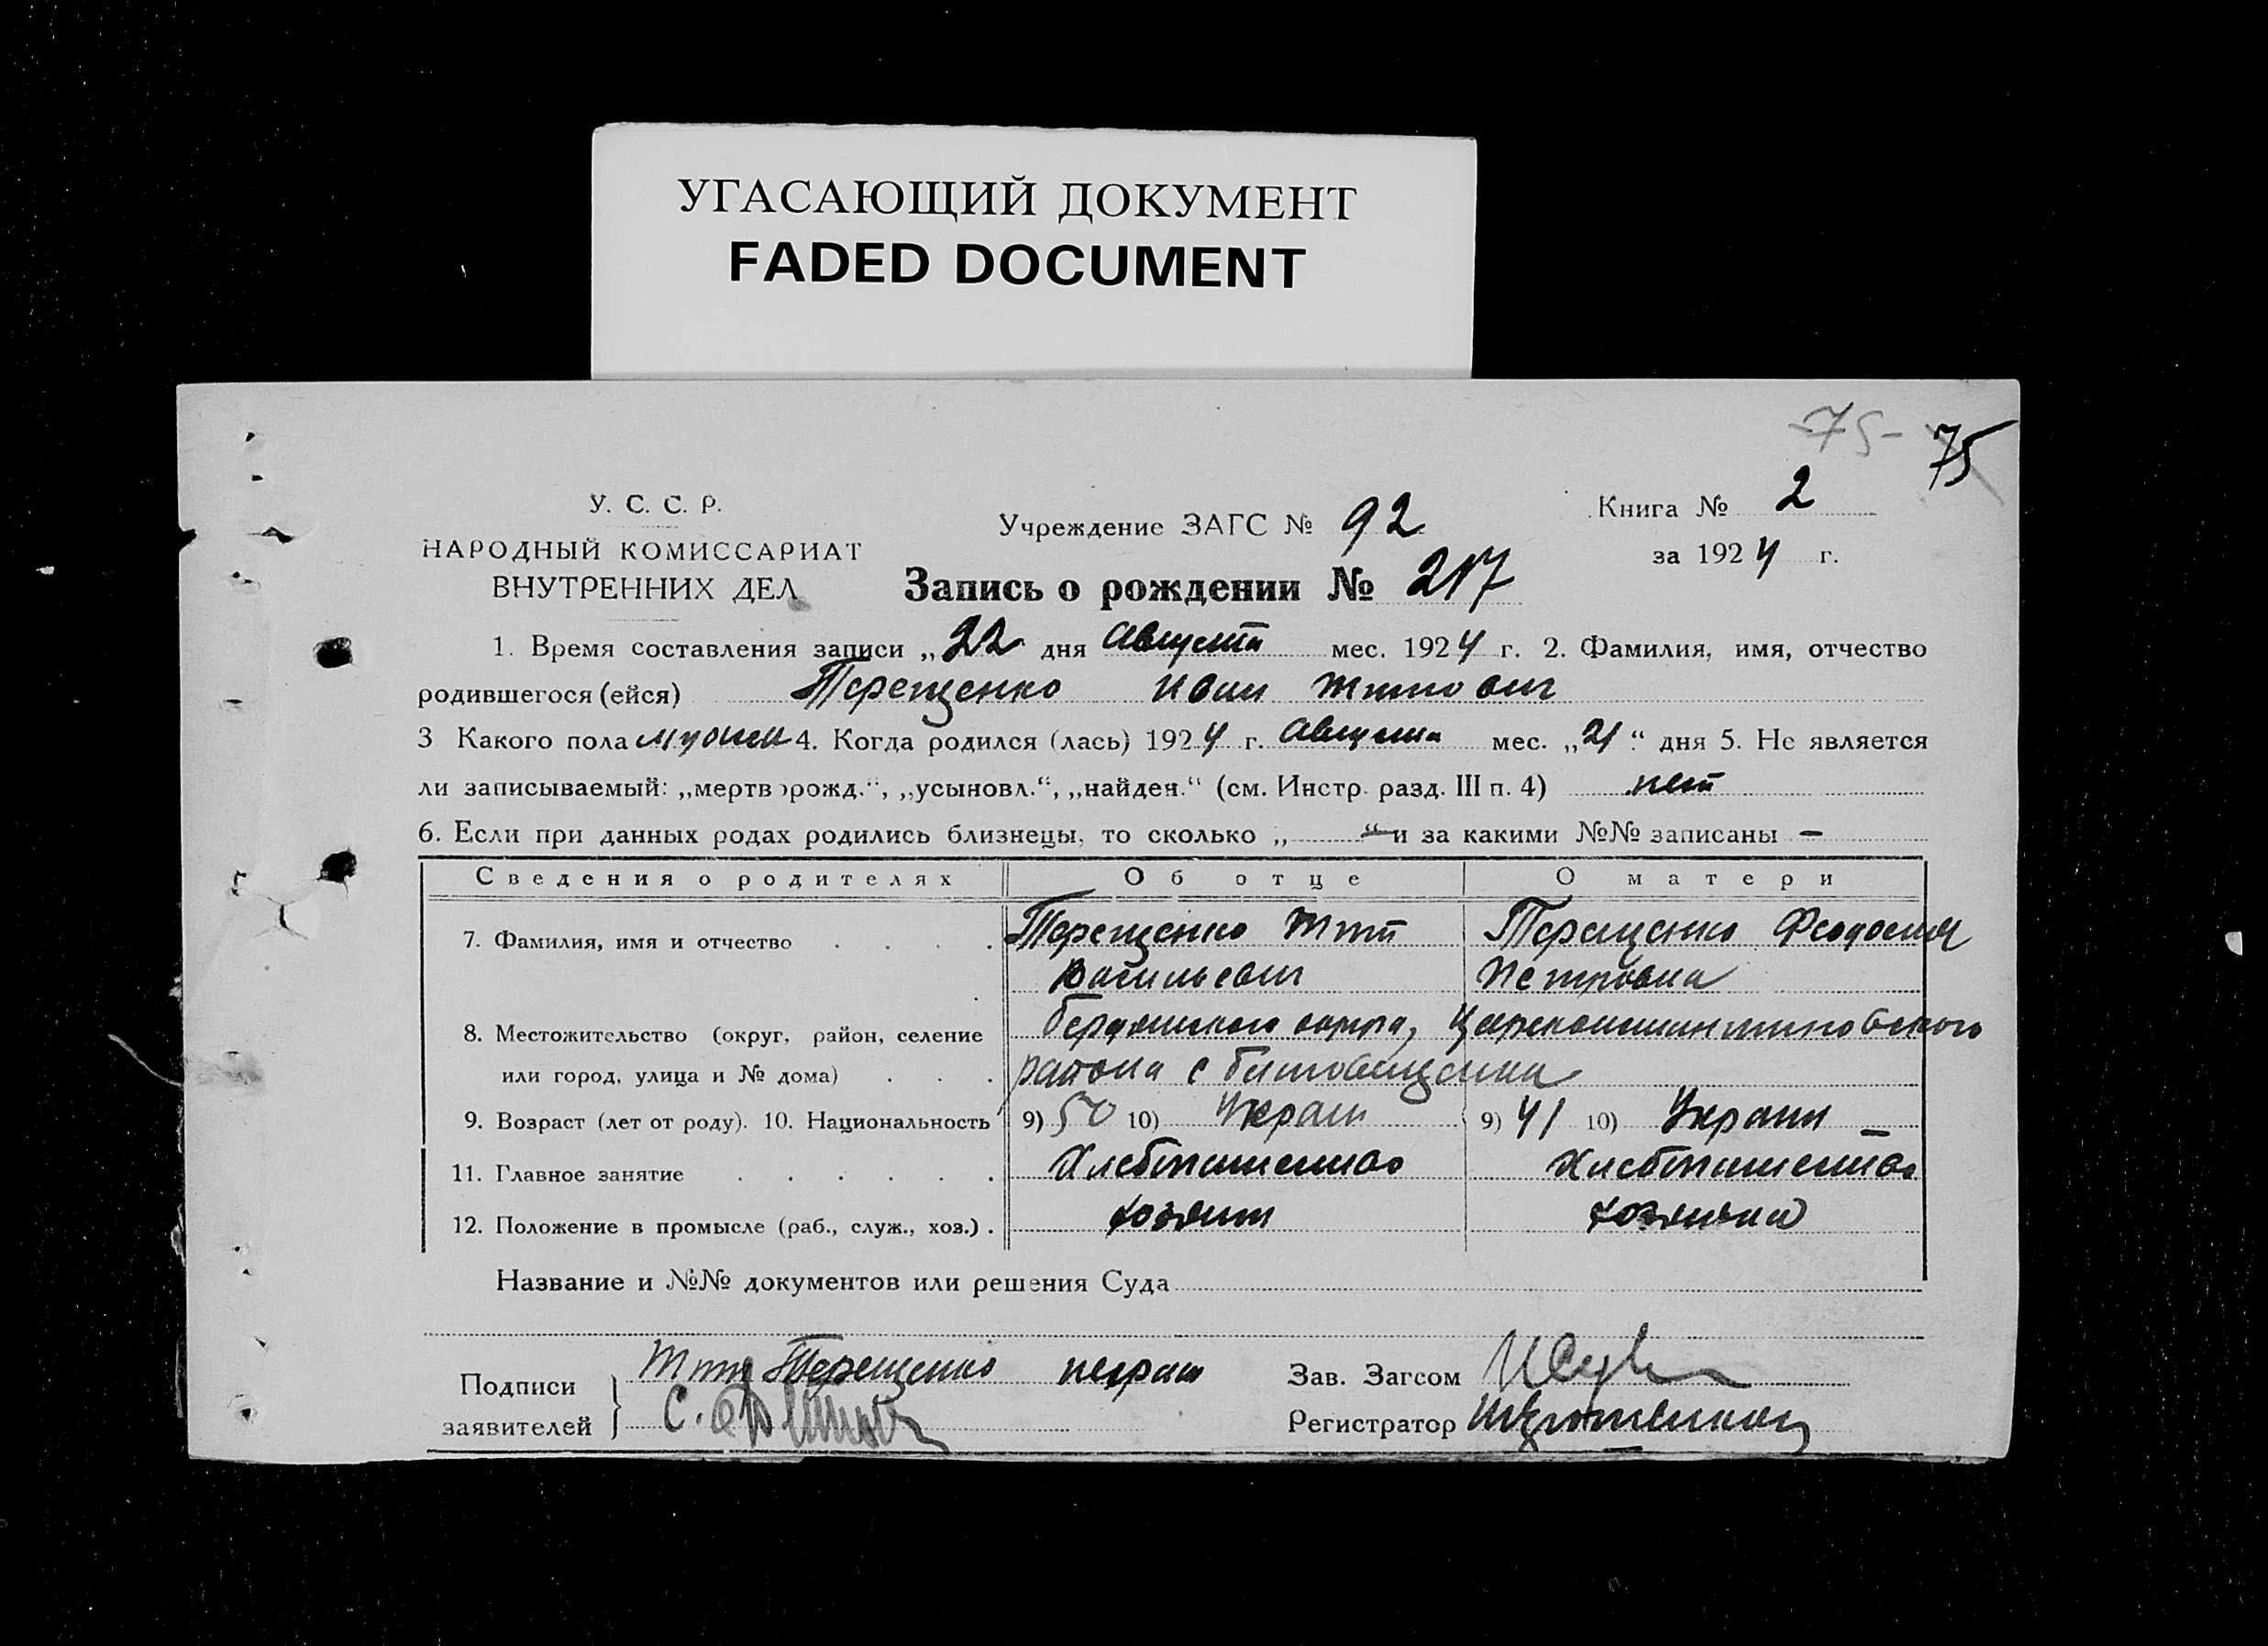 УГАСАЮЩИЙ ДОКУМЕНТ
FADED DOCUMENT
-75- 75
У. С. С. Р.
НАРОДНЫЙ КОМИССАРИАТ
ВНУТРЕННИХ ДЕЛ
Учреждение ЗАГС № 92
Книга № 2
за 1924 г.
Запись о рождении № 217
1. Время составления записи „22 дня Августа мес. 1924 г. 2. Фамилия, имя, отчество
родившегося (ейся) Терещенко Иван Титович
3 Какого пола мужск 4. Когда родился (лась) 1924 г. Августа мес. „21“ дня 5. Не является
ли записываемый: „мертворожд.“, „усыновл.“, „найден.“ (см. Инстр. разд. III п. 4) нет
6. Если при данных родах родились близнецы, то сколько „—“ и за какими №№ записаны —
Сведения о родителях Об отце О матери
7. Фамилия, имя и отчество Терещенко Тит Терещенко Феодосия
Васильевич Петровна
8. Местожительство (округ, район, селение Бердянского округа, Цареконстантиновского
или город, улица и № дома) района с
9. Возраст (лет от роду). 10. Национальность 9) 50 10) Украин 9) 41 10) Украин
11. Главное занятие Хлебопашество Хлебопашество
12. Положение в промысле (раб., служ., хоз.) хозяин хозяйка
Название и №№ документов или решения Суда
Подписи Тит Терещенко неграм
заявителей С.
Зав. Загсом
Регистратор